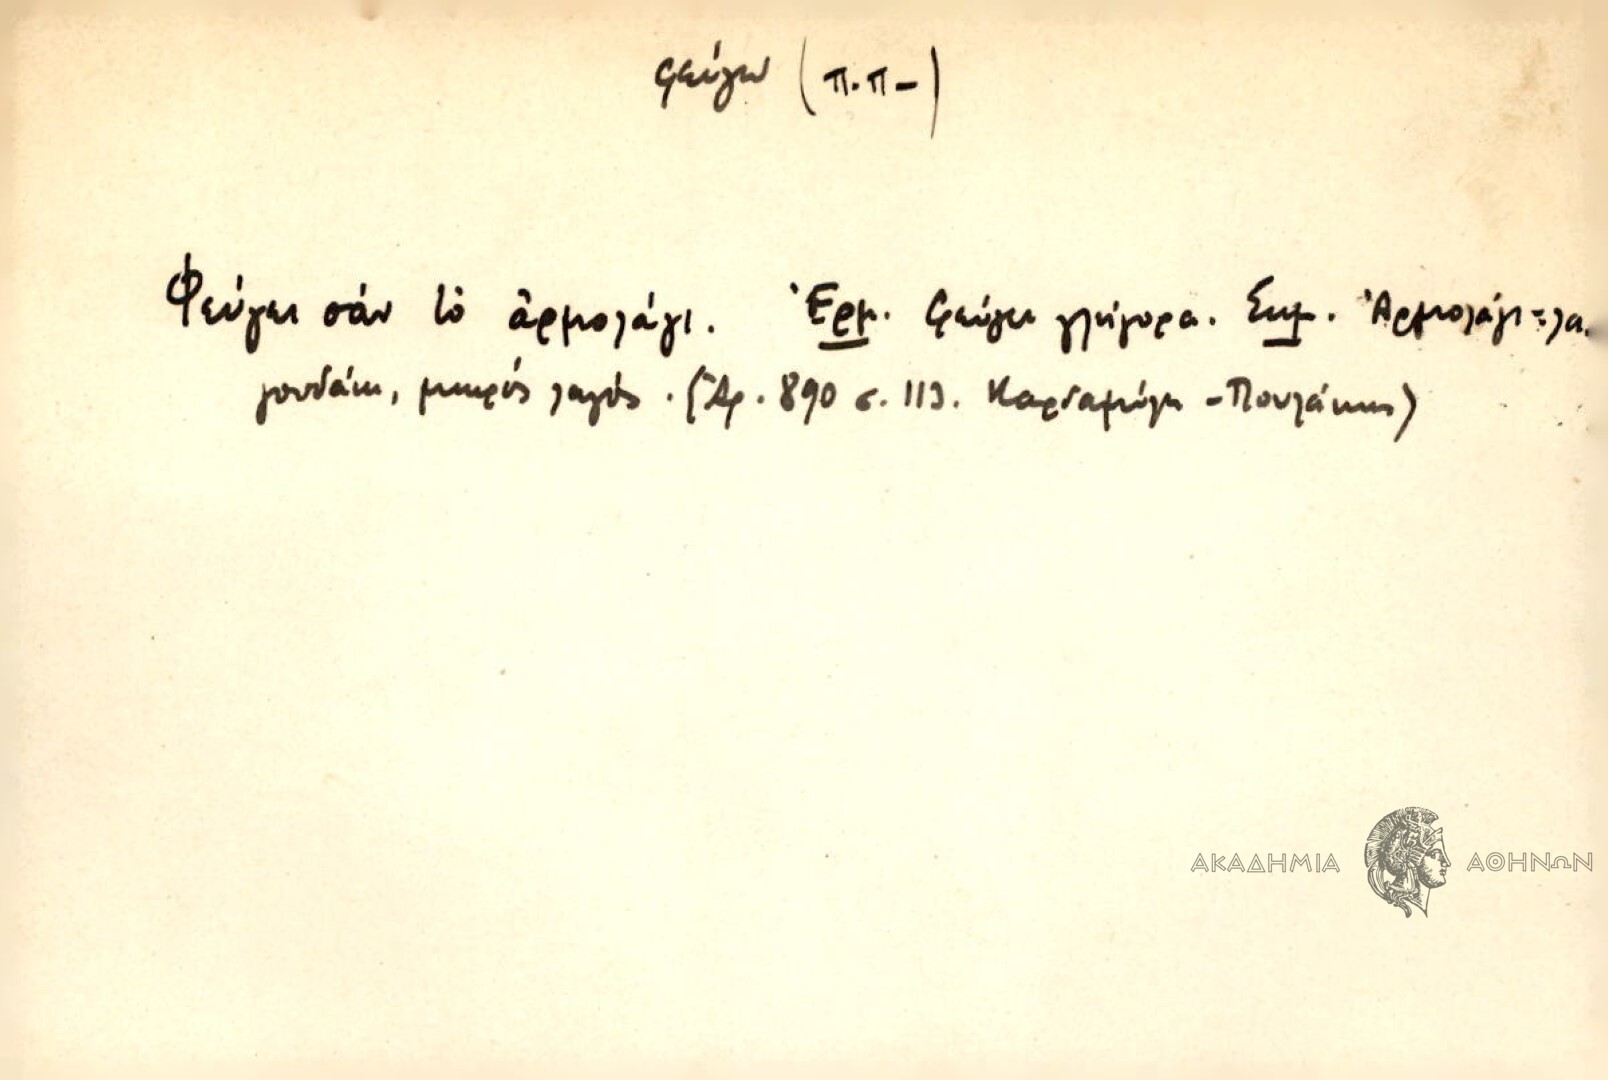 φεύγω (π.π-)
Φεύγει σάν τὸ ἀρμολάγι. Ἑρμ. φεύγει γλήγορα. Σημ. Ἀρμολάγι = λα.
γουδάκι, μικρός λαγός. (Ἀρ. 890 σ. 113. Καρδαμύλη - Πουλάκης)
ΑΚΑΔΗΜΙΑ ΑΘΗΝΩΝ